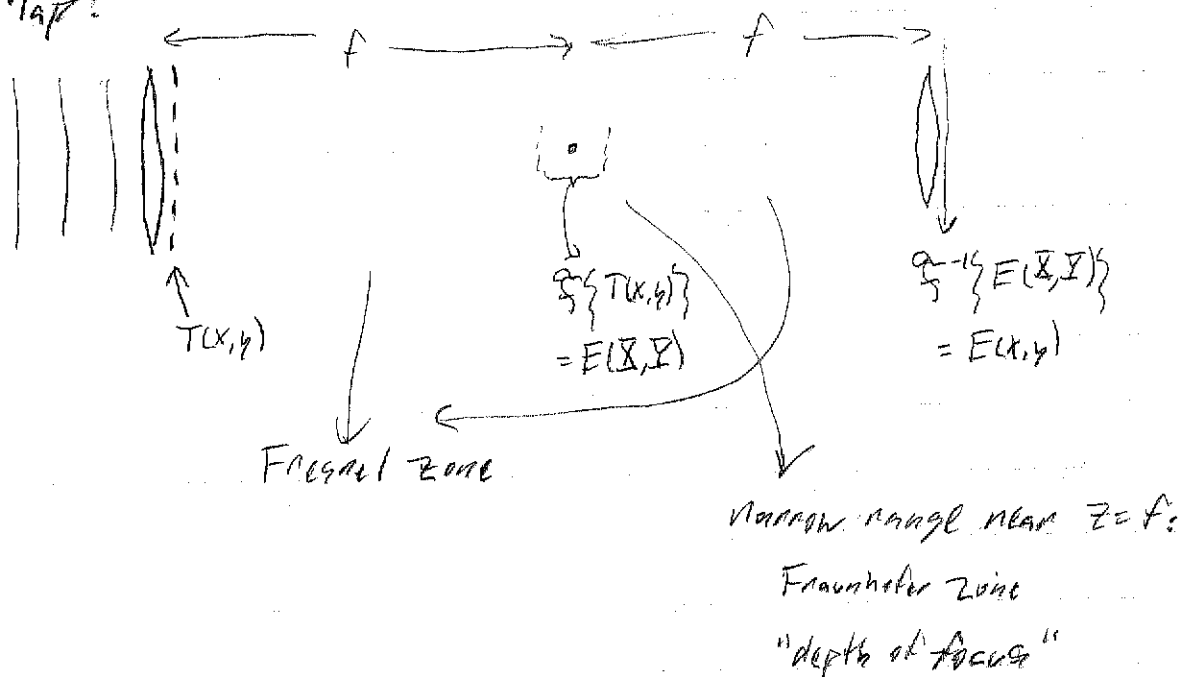 Map:
f
f
T(x,y)
ℱ{T(x,y)}
= E(X,Y)
ℱ⁻¹{E(X,Y)}
= E(x,y)
Fresnel zone
narrow range near z = f:
Fraunhofer zone
"depth of focus"